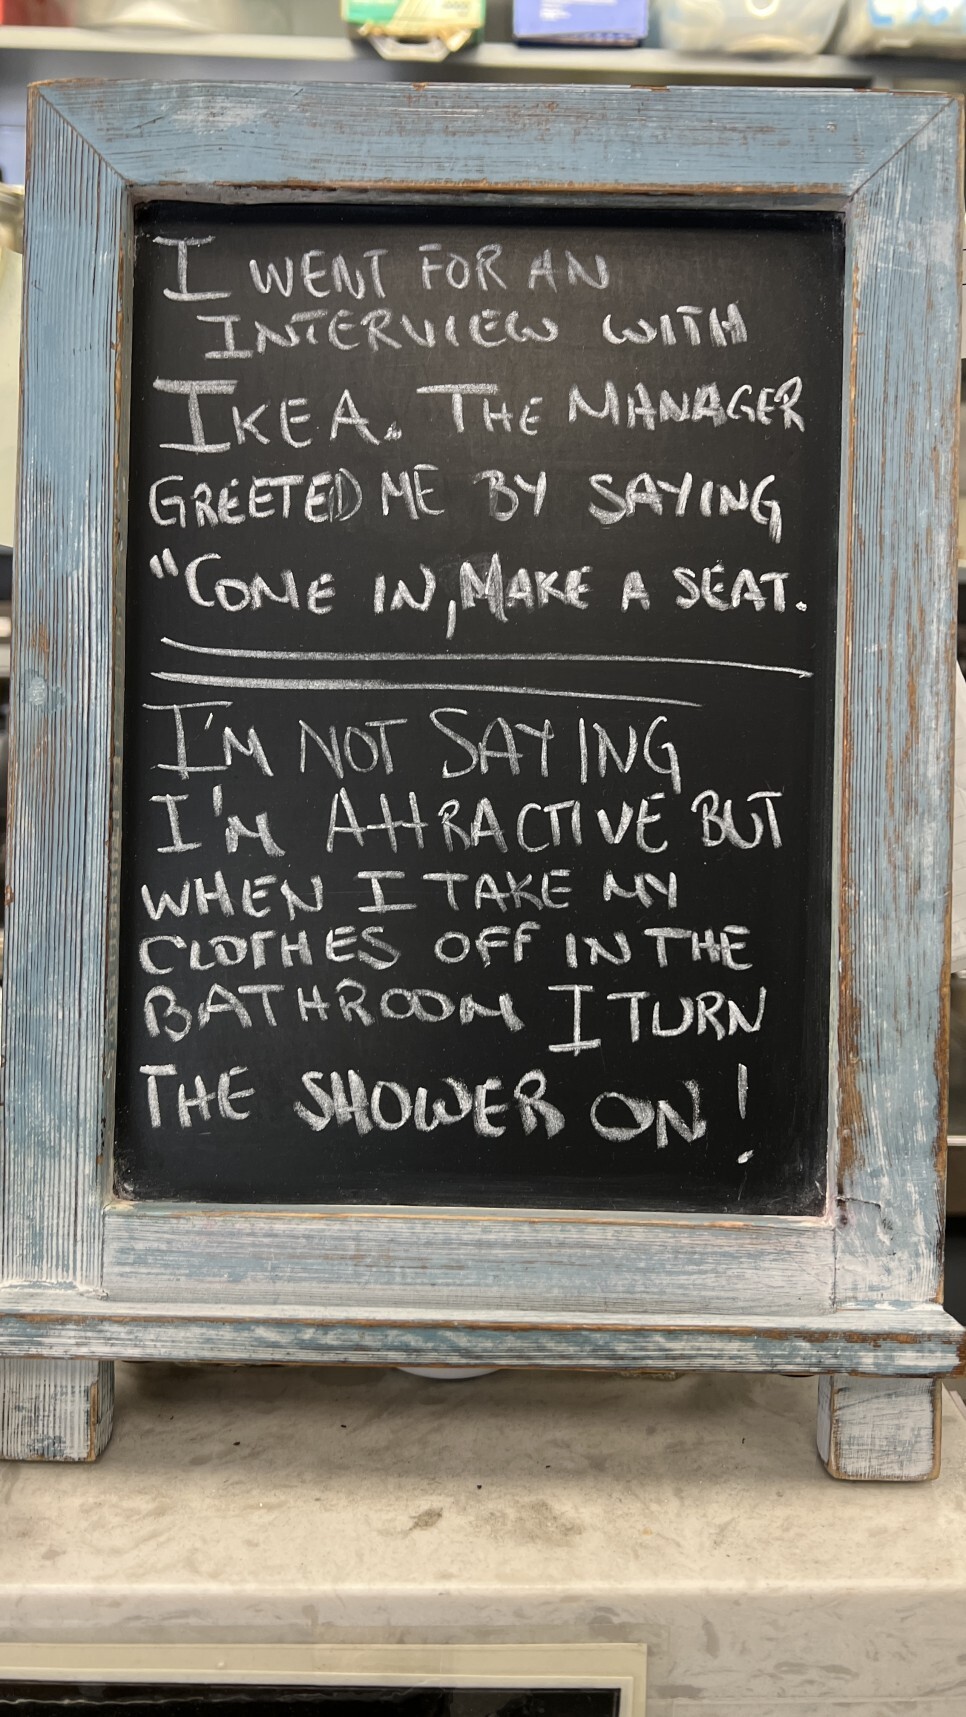 I WENT FOR AN
INTERVIEW WITH
IKEA. THE MANAGER
GREETED ME BY SAYING
"COME IN, MAKE A SEAT.
I'M NOT SAYING
I'M ATTRACTIVE BUT
WHEN I TAKE MY
CLOTHES OFF IN THE
BATHROOM I TURN
THE SHOWER ON!